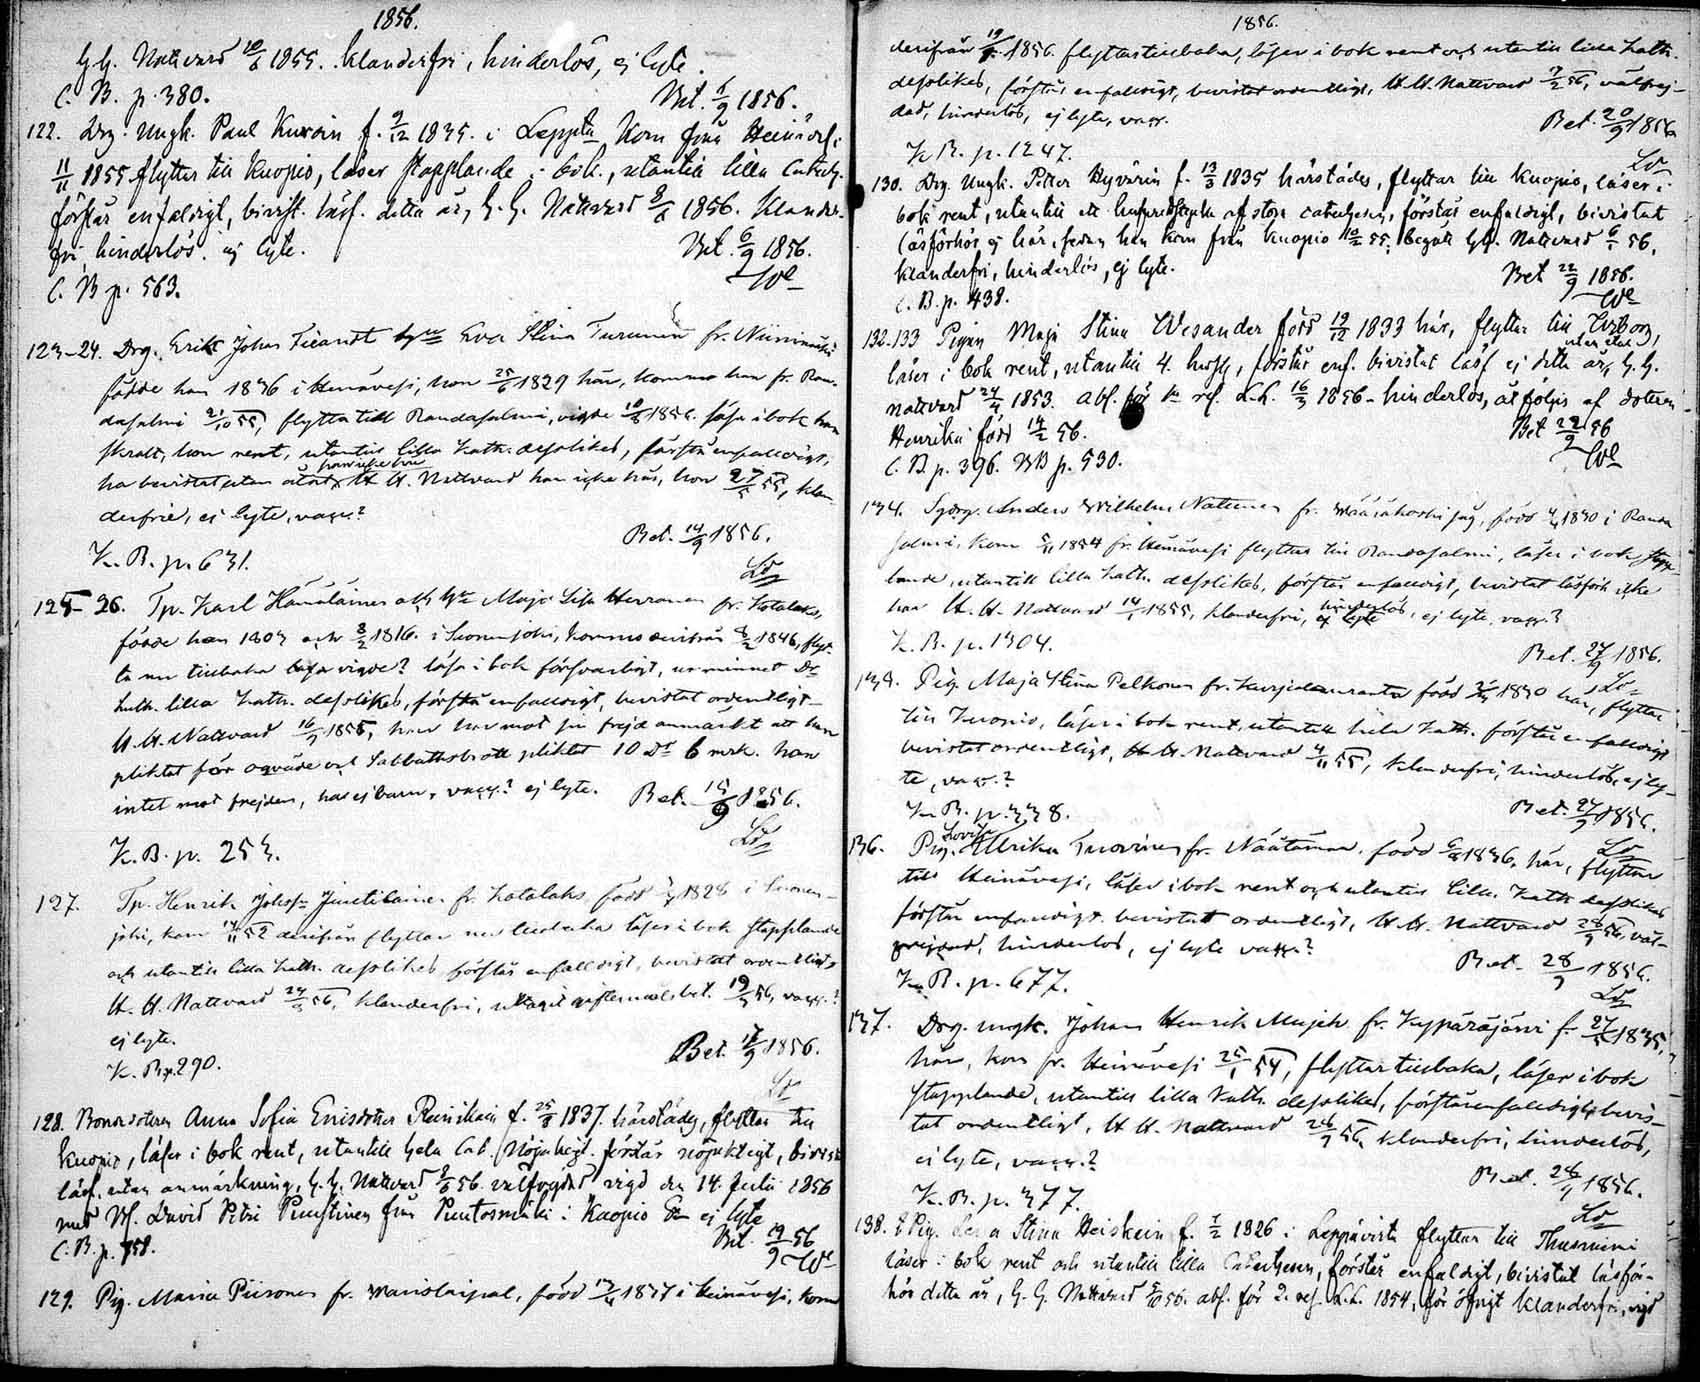 1856.
H.H. Nattvard 10/6 1855. klanderfri, hinderlös, ej lyte.
C. B. p. 380.
Bet. 1/9 1856.
122. Drg. Ungk. Paul f. 9/12 1835 i Leppvta Kom från Heinäv.
11/11 1855 flyttar till Kuopio, läser stapplande i bok, utantill lilla Catech.
förstår enfaldigt, bivist. läsf. detta år, H.H. Nattvard 8/6 1856. Klander-
fri, hinderlös, ej lyte.
Bet. 6/9 1856.
C. B. p. 563.
123-24. Drg. Erik Johan Ticandt Eva Stina Turunen fr.
födde han 1836 i Heinävesi, hon 25/6 1829 här, kommo han fr. Ran-
dasalmi 21/10 55, flytta till Randasalmi, vigde 1856. läsa i bok han
svalt, hon rent, utantill lilla Kath. dessliked, förstå enfalldigt,
ha bevistat utan H.H. Nattvard han icke här, hon 27/5 55, klan-
derfrie, ej lyte, vacc.?
Bet. 14/9 1856.
K. B. p. 631.
125-26. Tp. Karl Hämäläinen och Maja Lisa Herranen fr. Kotalaks,
födde han 1803 och 8/2 1816 i Suonnejoki, kommo derifrån 1846, flyt-
ta nu tillbaka vigde? läsa i bok försvarligt, ur minnet Dr
Luth. lilla Kath. dessliked, förstå enfalldigt, bevistat ordentligt
H.H. Nattvard 16/9 1855, han har mot sin frejd anmärkt att han
pliktat för oqväde och Sabbathsbrott pliktat 10 Dr 6 mrk. hon
intet mot frejden, ha ej barn, vacc.? ej lyte.
Bet. 15/9 1856.
K. B. p. 253.
127. Tp. Henrik Johss. Juutilainen fr. Kotalaks född 1828 i Suonen-
joki, kom 52 derifrån flyttar nu tillbaka läser i bok stapplande
och utantill lilla Kath. dessliked förstår enfalldigt, bevistat ordentligt
H.H. Nattvard 24/3 56, klanderfri, uttagit giftermålsbet. 19/5 56, vacc.?
ej lyte.
Bet. 18/9 1856.
K. B. p. 290.
128. Bondedottren Anna Sofia Ericsdotter f. 25/3 1837. härstädes, flyttar till
Kuopio, läser i bok rent, utantill hela Cat. nöjaktigt. förstår nöjaktigt, bivist.
läsf. utan anmärkning, H.H. Nattvard 8/6 56. välfrejdad vigd den 14 Juli 1856
med David Petri från Puutosmäki i Kuopio ej lyte
C. B. p. 758.
Bet. 19/9 56
129. Pig. Maria Piironen fr., född 1837 i Heinävesi, kom
1856.
derifrån 1856. flyttar tillbaka, läser i bok rent och utantill lilla Kath.
dessliked, förstår enfalldigt, bevistat ordentligt, H.H. Nattvard 17/2 56, välfrej-
dad, hinderlös, ej lyte, vacc.
Bet. 20/9 1856
K. B. p. 1247.
130. Drg. Ungk. Petter Hyvärin f. 13/3 1835 härstädes, flyttar till Kuopio, läser i
bok rent, utantill ett hufvudstycke af stora catechesen, förstår enfaldigt, bivistat
läsförhör ej här, sedan han kom från Kuopio 10/2 55. begått H.H. Nattvard 6/1 56.
klanderfri, hinderlös, ej lyte.
Bet 22/9 1856.
C. B. p. 438.
132.133 Pigan Maja Stina Wesander född 19/12 1833 här, flyttar till Wiborg,
läser i bok rent, utantill 4. hufst., förstår enf. bivistat läsf ej detta år, H.H.
nattvard 24/4 1853. abs. för 1a res. L.L. 16/3 1856 - hinderlös, åtföljes af dottren
Henrika född 14/2 56.
Bet 22/9 56
C. B. p. 396. BB p. 530.
134. Anders Wilhelm Nattunen fr., född 1830 i Randa-
salmi, kom 1854 fr. Heinävesi flyttar till Randasalmi, läser i bok stapp-
lande, utantill lilla Kath. dessliked, förstår enfalldigt, bevistat läsförh icke
här H.H. Nattvard 14/1 1855, klanderfri, hinderlös, ej lyte, vacc.?
K. B. p. 1304.
Bet. 27/9 1856.
Pig. Maja Stina Pelkonen fr. Kurjalanranta född 1830 här, flyttar
till Kuopio, läser i bok rent, utantill hela Kath. förstår enfalldigt
bevistat ordentligt, H.H. Nattvard 4/11 55, klanderfri, hinderlös, ej ly-
te, vacc.?
K. B. p. 338.
Bet. 27/9 1856.
136. Pig. Lovisa Ulrika Tuovinen fr. Näätänmaa, född 1836, här, flyttar
till Heinävesi, läser i bok rent och utantill lilla Kath dessliked
förstår enfalldigt. bevistat ordentligt, H.H. Nattvard 28/9 56, väl-
frejdad, hinderlös, ej lyte vacc.?
K. B. p. 677.
Bet. 28/9 1856.
137. Drg. ungk. Johan Henrik fr. Kypäräjärvi f. 27/5 1835,
här, kom fr. Heinävesi 25/1 54, flyttar tillbaka, läser i bok
stapplande, utantill lilla Kath. dessliked, förstår enfalldigt, bevis-
tat ordentligt, H.H. Nattvard 28/9 56, klanderfri, hinderlös,
ej lyte, vacc.?
K. B. p. 377.
Bet. 28/9 1856.
138. Pig. Stina Heiskein f. 7/2 1826 i Leppävirta flyttar till Thusniemi
läser i bok rent och utantill lilla Catechesen, förstår enfaldigt, bivistat läsför-
hör detta år, H.H. Nattvard 56. abs. för 2. res. L.L. 1854, för öfrigt klanderfri, vigd